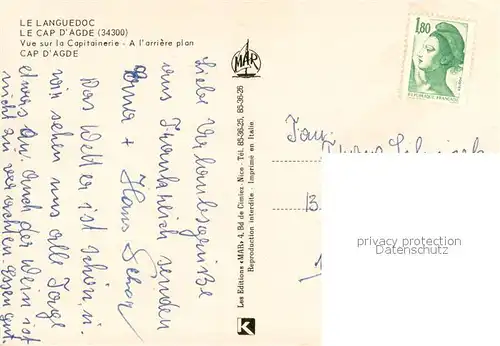 LE LANGUEDOC
LE CAP D'AGDE (34300)
Vue sur la Capitainerie - A l'arrière plan
CAP D'AGDE
MAR
1,80
REPUBLIQUE FRANÇAISE
Liebe Urlaubsgrüße
aus Frankreich senden
Erna + Hans
Das Wetter ist schön, u.
wir sehen uns alle Tage
etwas an. Auch der Wein ist
nicht zu verachten. Essen gut.
Les Editions «MAR» 4, Bd de Cimiez - Nice - Tél. 85-36-25, 85-36-26
Reproduction interdite - Imprimé en Italie
K
privacy protection
Datenschutz